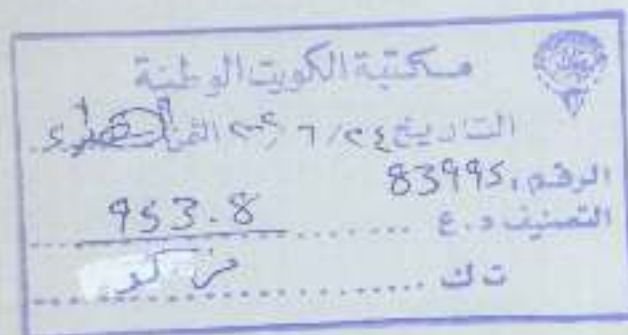 مكتبة الكويت الوطنية
التاريخ ٢٤/٦/ الثمن
الرقم: 83995
التصنيف د.ع 953.8
ت ك